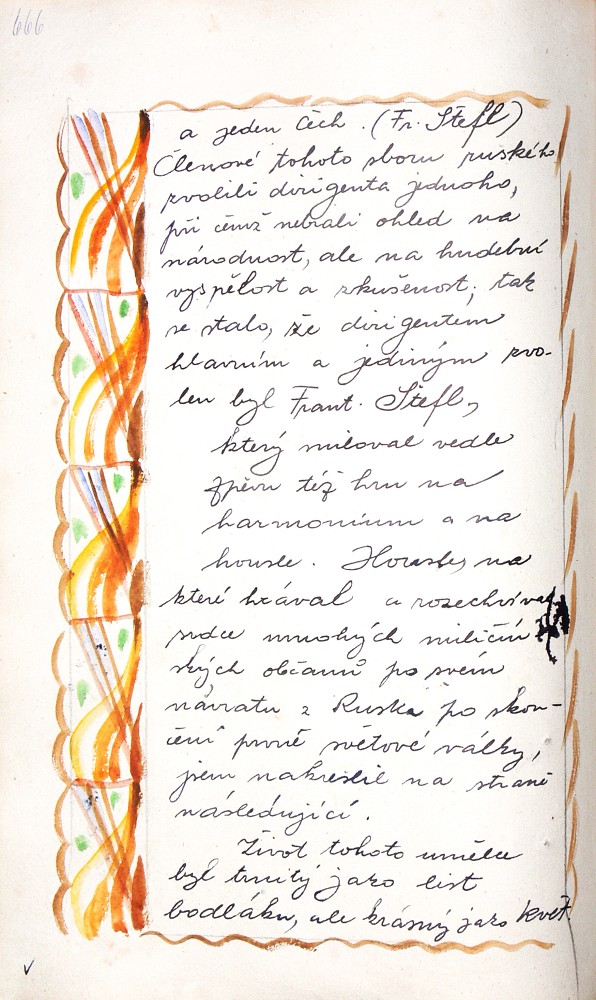 666
a jeden Čech. (Fr. Štefl)
Členové tohoto sboru ruského
zvolili dirigenta jednoho,
při čemž nebrali ohled na
národnost, ale na hudební
vyspělost a zkušenost; tak
se stalo, že dirigentem
hlavním a jediným zvo-
len byl Frant. Štefl,
který miloval vedle
zpěvu též hru na
harmonium a na
housle. Housle, na
které hrával a rozechvíval
srdce mnohých miličín
ských občanů po svém
návratu z Ruska po skon-
čení prvně světové války,
jsem nakreslil na straně
následující.
Život tohoto umělce
byl trnitý jako list
bodláku, ale krásný jako květ.
v